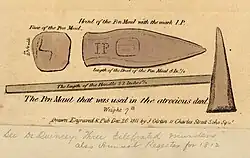 Head of the Pen Maul with the mark I.P.
Face of the Pen Maul
I P
Length of the Head of the Pen Maul 8 In.
The Length of the Handle 23 Inches
The Pen Maul that was used in the atrocious deed.
Weight
Drawn Engraved & Pub Dec 26 1811 by J Girtin Charles Street Soho Sqr
See De Quincey "Three Celebrated murders
also Annual Register for 1812